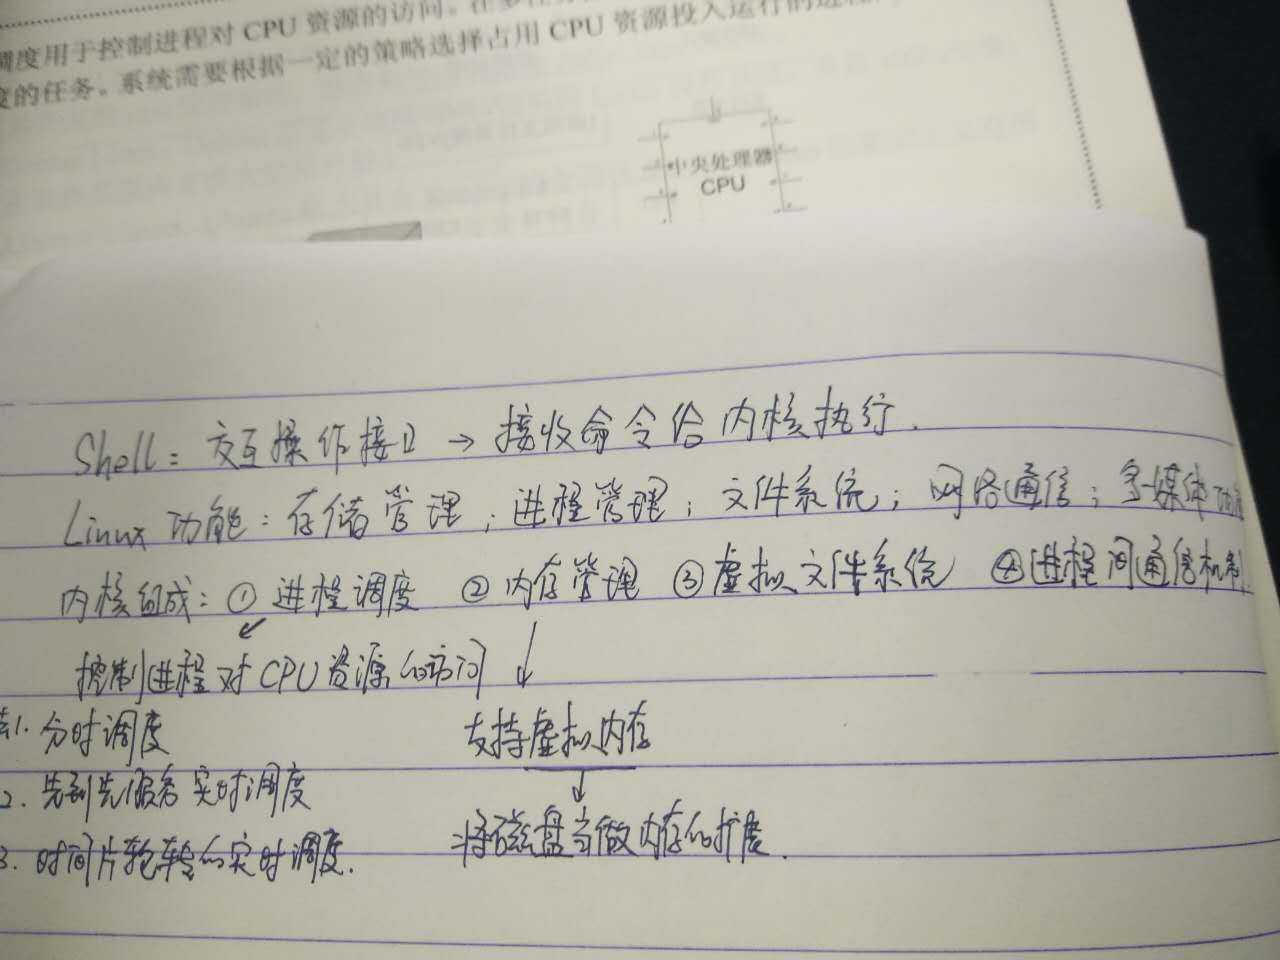 调度用于控制进程对 CPU 资源的访问。
度的任务。系统需要根据一定的策略选择占用 CPU 资源投入运行的进程
中央处理器
CPU
Shell：交互操作接口 → 接收命令给内核执行.
Linux 功能：存储管理；进程管理；文件系统；网络通信；多媒体功能
内核组成：① 进程调度 ② 内存管理 ③ 虚拟文件系统 ④ 进程间通信机制
↙ ↓
控制进程对CPU资源的访问
1. 分时调度 支持虚拟内存
↓
2. 先到先服务实时调度
3. 时间片轮转的实时调度. 将磁盘当做内存的扩展.